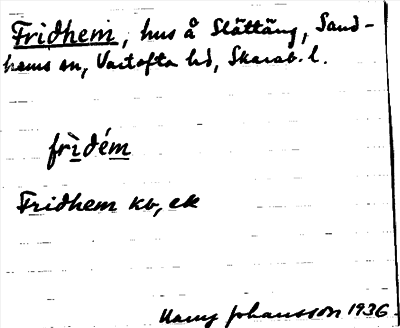 Fridhem, hus å Slättäng, Sand-
hems sn, Vartofta hd, Skarab. l.
frìdém
Fridhem kb, ek
Harry Johansson 1936.